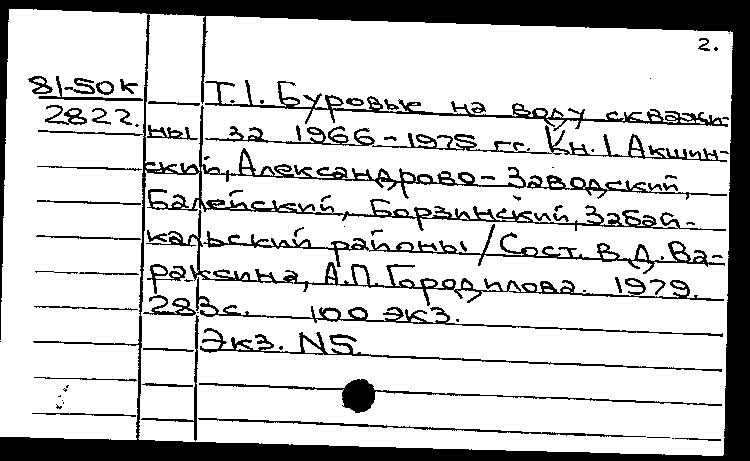 2.
81-50к
2822.
Т.1. Буровые на воду скважи-
ны за 1966-1975 гг. Кн.1. Акшин-
ский, Александрово-Заводский,
Балейский, Борзинский, Забай-
кальский районы / Сост. В.Д. Ва-
раксина, А.П. Городилова. 1979.
283с. 100 экз.
Экз. N5.